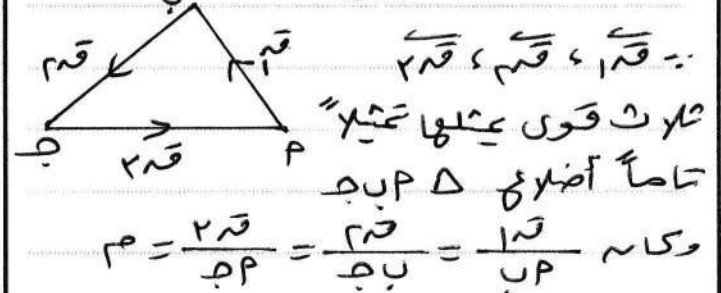 ب
ق٢ ق١
جـ ق٣ أ
∵ ق١ ، ق٢ ، ق٣
ثلاث قوى يمثلها تمثيلاً
تاماً أضلاع Δ أ ب جـ
وكان ق١/أ ب = ق٢/ب جـ = ق٣/أ جـ = م